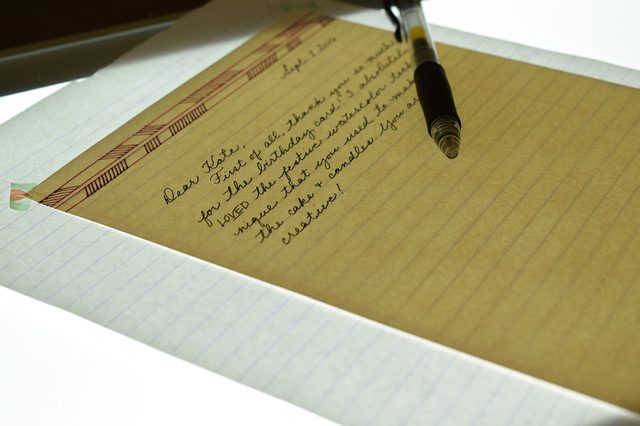 Sept. 3, 2016
Dear Kate,
First of all, thank you so much
for the birthday card! I absolutely
LOVED the festive watercolor tech
nique that you used to make
the cake & candles. You are
creative!